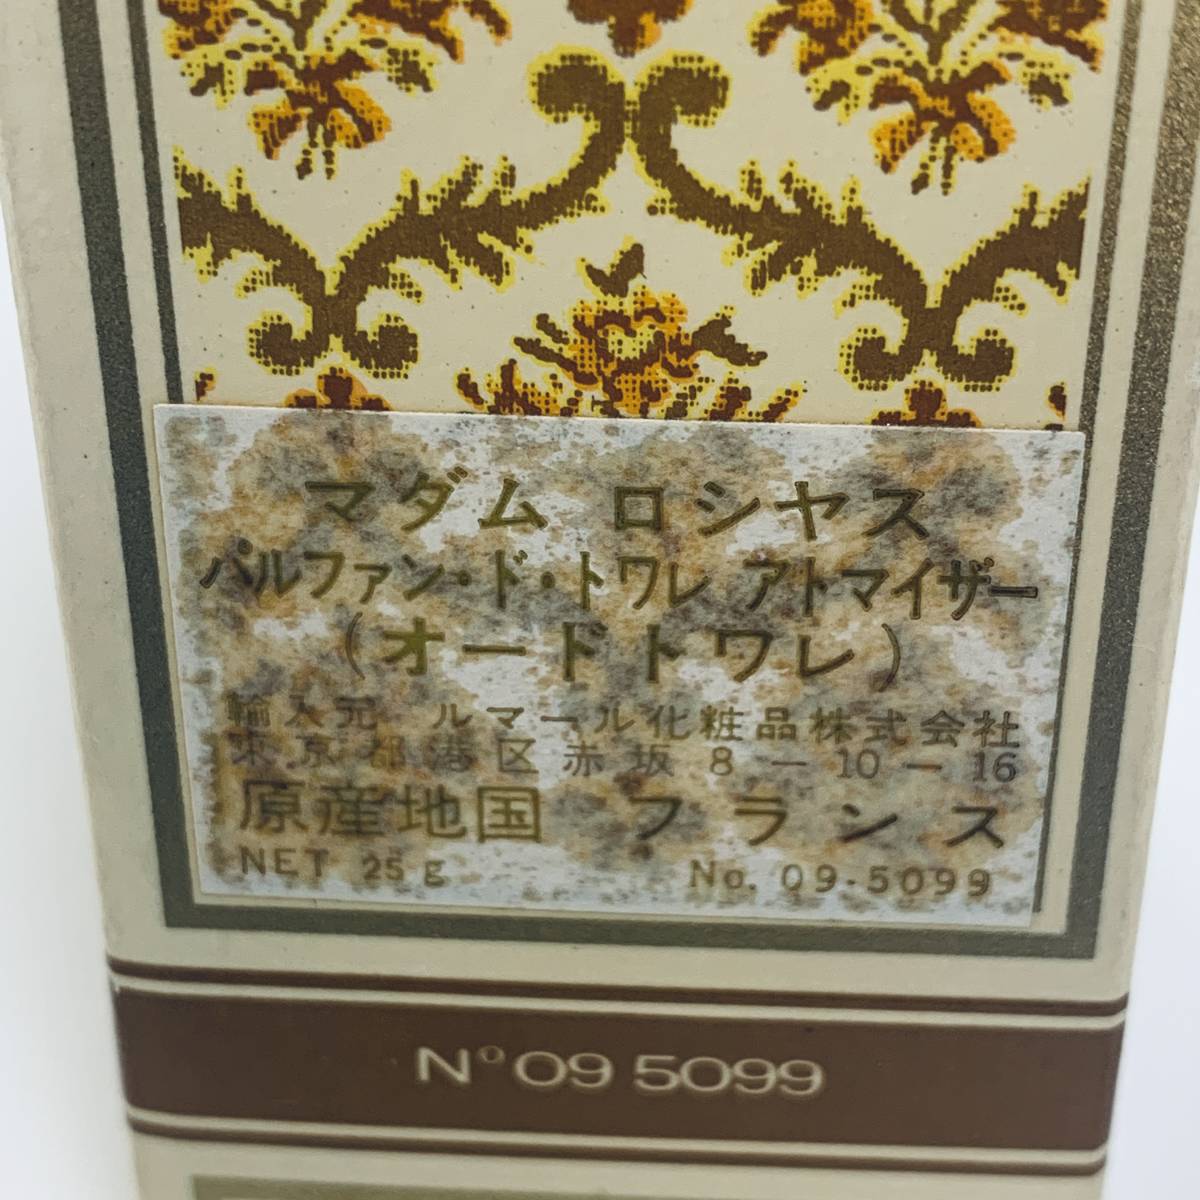 マダム ロシヤス
パルファン・ド・トワレ アトマイザー
(オードトワレ)
輸入元 ルマール化粧品株式会社
東京都港区赤坂8-10-16
原産地国 フランス
NET 25g No. 09-5099
N° 09 5099